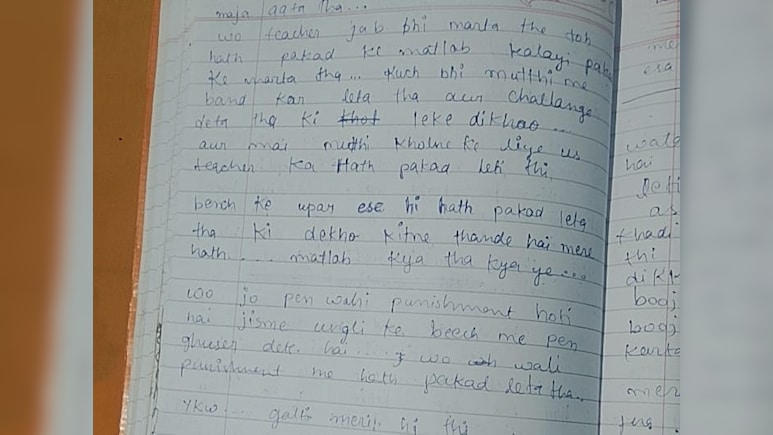 maja aata tha...
wo teacher jab bhi marta the toh
hath pakad ke matlab kalayi pak
ke marta tha... kuch bhi mutthi me
band kar leta tha aur challange
deta tha ki leke dikhao...
aur mai muthi kholne ke liye us
teacher ka Hath pakad leti thi
bench ke upar ese hi hath pakad leta
tha ki dekho kitne thande hai mere
hath.... matlab kya tha kya ye...
wo jo pen wahi punishment hoti
hai jisme ungli ke beech me pen
ghuser dete hai... wo wali
punishment me hath pakad leta tha..
YKW... galti meri hi thi
me
esa
wale
hai
leti
as
thadi
thi
dikh
booj
booj
karte
mer